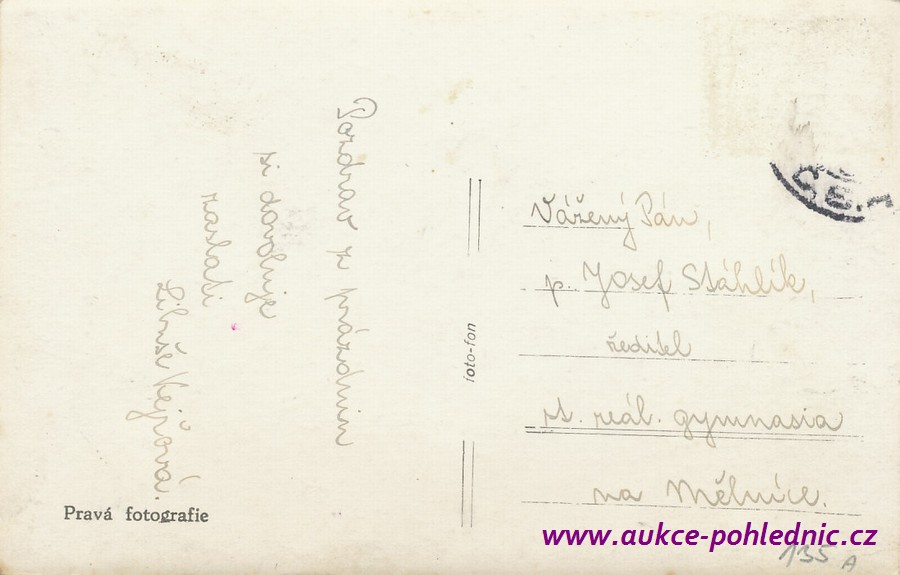 Pozdrav z prázdnin
si dovoluje
zaslati
Libuše Kejřová.
Pravá fotografie
foto-fon
Vážený Pán,
p. Josef Stáhlík,
ředitel
st. reál. gymnasia
na Mělníce.
www.aukce-pohlednic.cz
135 A